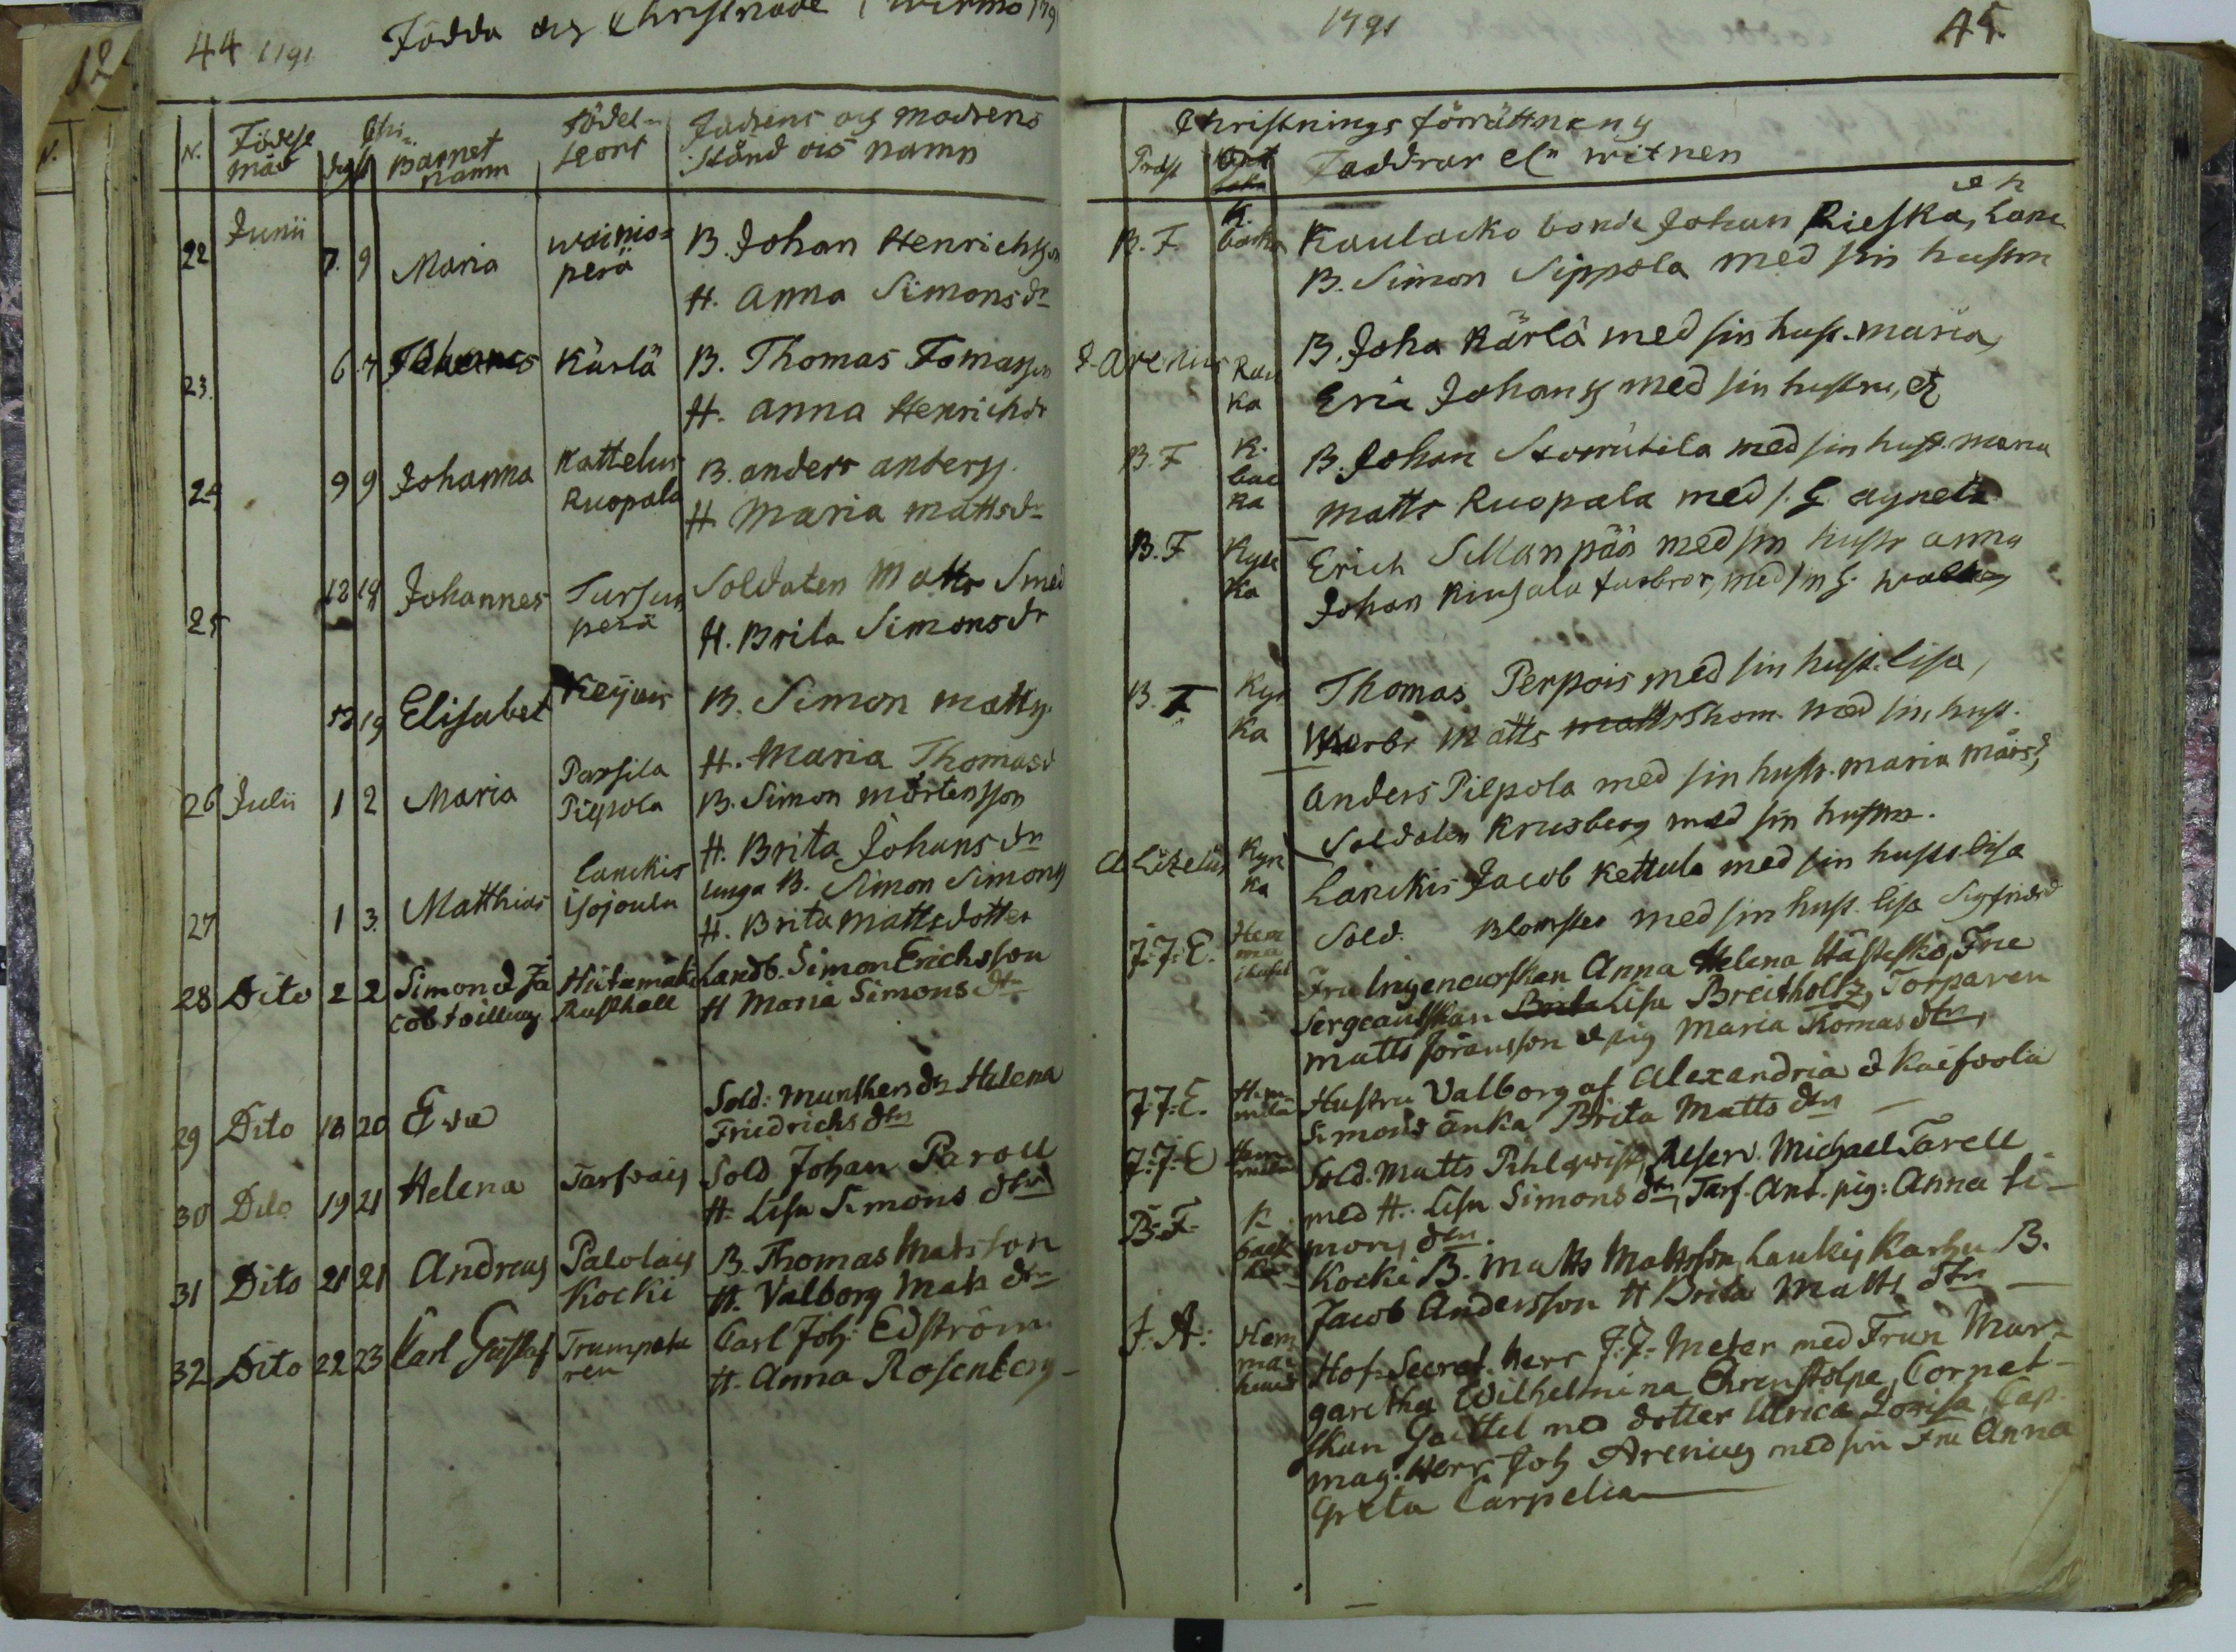 44 1791 Födda og Christnade i wirmo 179
N. Födelse mån dag Chr: Barnet namn Födel- se ort Fadrens og modrens stånd och namn
Junii
22 7. 9 Maria wainio= perä B. Johan Henrichsson
H. Anna Simons dr
23. 6 7 Johannes Kärlä B. Thomas Tomasson
H. anna Henrichdr
24 9 9 Johanna Kattelus Ruopala B. anders anderss.
H. Maria mattsdr
25 18 19 Johannes Tursun perä Soldaten Matts Smed
H. Brita Simonsdr
19 Elisabet Keijois B. Simon matts.
H. Maria Thomasd
26 Julii 1 2 Maria Parsila Piepola B. Simon mårtensson
H. Brita Johans dr
27 1 3. Matthias Lauckis isojoulu unga B. Simon Simons
H. Brita Mattsdotter
28 Dito 2 2 Simon & Ja cob tvilling Hiitamäki Rusthall Landb. Simon Erichsson
H Maria Simons dtr
29 Dito 18 20 Eva Sold: Munthers dr Helena
Friedrichs dtr
30 Dito 19 21 Helena Tarfvais Sold Johan Paroll
H. Lisa Simons dtr
31 Dito 21 21 Andreas Palolais Kocki B. Thomas Matsson
H. Valborg Mats dtr
32 Dito 22 23 Carl Gustaf Trumpeta ren Carl Joh: Edström
H. Anna Rosenberg
1791 45.
Christnings förrättning
Präst Faddrar el witnen
B. F. K. backa Kaulacko bonde Johan Rieska, Lanc
B. Simon Sippola med sin hustru
J. Arenius Kac ka B. Joha Kärlä med sin hust. maria,
Eric Johans med sin hustru, &
B. F K. bac ka B. Johan Stoorutila med sin hust. maria
Matts Ruopala med s. H. agneta
B. F Kyrc ka Erich Sillanpää med sin hustr anna
Johan Kiusala farbror, med sin H. walborg
B. F Kyr ka Thomas Perpois med sin hust. lisa,
Matts Thom. med sin hust.
Anders Pilpola med sin hustr. maria mårsd,
Soldaten Krusberg med sin hustru.
A Litzelius Kyr ka Lauckis Jacob Kettula med sin hustr. lisa
Sold. Blomster med sin hust. lisa Sigfridsd
J. J. E. Fru Ingeneurskan Anna Helena Hästesko, Frue
Sergeantskan Brita Lisa Breitholtz, Torparen
matts Jöransson & pig Maria Thomas dtr,
J. J. E. Hem mila Hustru Valborg af Alexandria & Kaifvola
Simons änka Brita Matts dtr
J. J. E Hem mila Sold. Matts Pihlqwist, Reserv. Michael Tarell
med H. Lisa Simons dtr, Tarf. Ant. pig: Anna Si-
mons dtr.
B. F. K back ka Kocki B. Matts Mattsson, Laukis Karhu B.
Jacob Andersson H Brita Matts dtr
J. A: Hem mai Hof Secret. Herr J. J. Meter med Frun Mar-
garetha Wilhelmina Ehrenstolpe, Cornet-
skan Gættel med dotter Ulrica Lovisa, Cap.
mag. Herr Joh Arenius med sin Fru Anna
Greta Carpelia